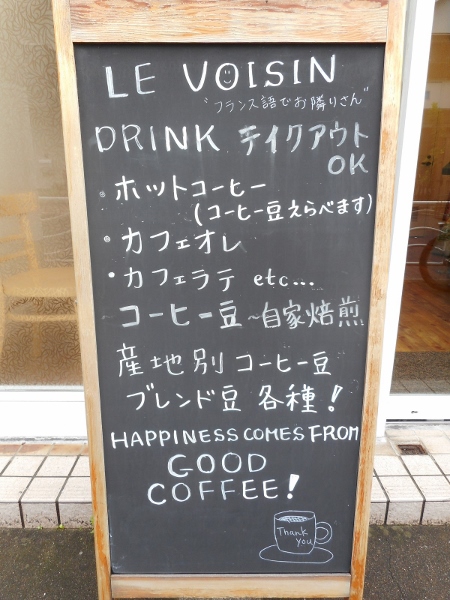 LE VOISIN
"フランス語でお隣りさん"
DRINK テイクアウト
OK
・ホットコーヒー
(コーヒー豆えらべます)
・カフェオレ
・カフェラテ etc...
コーヒー豆~自家焙煎
産地別 コーヒー豆
ブレンド豆 各種!
HAPPINESS COMES FROM
GOOD
COFFEE!
Thank
you